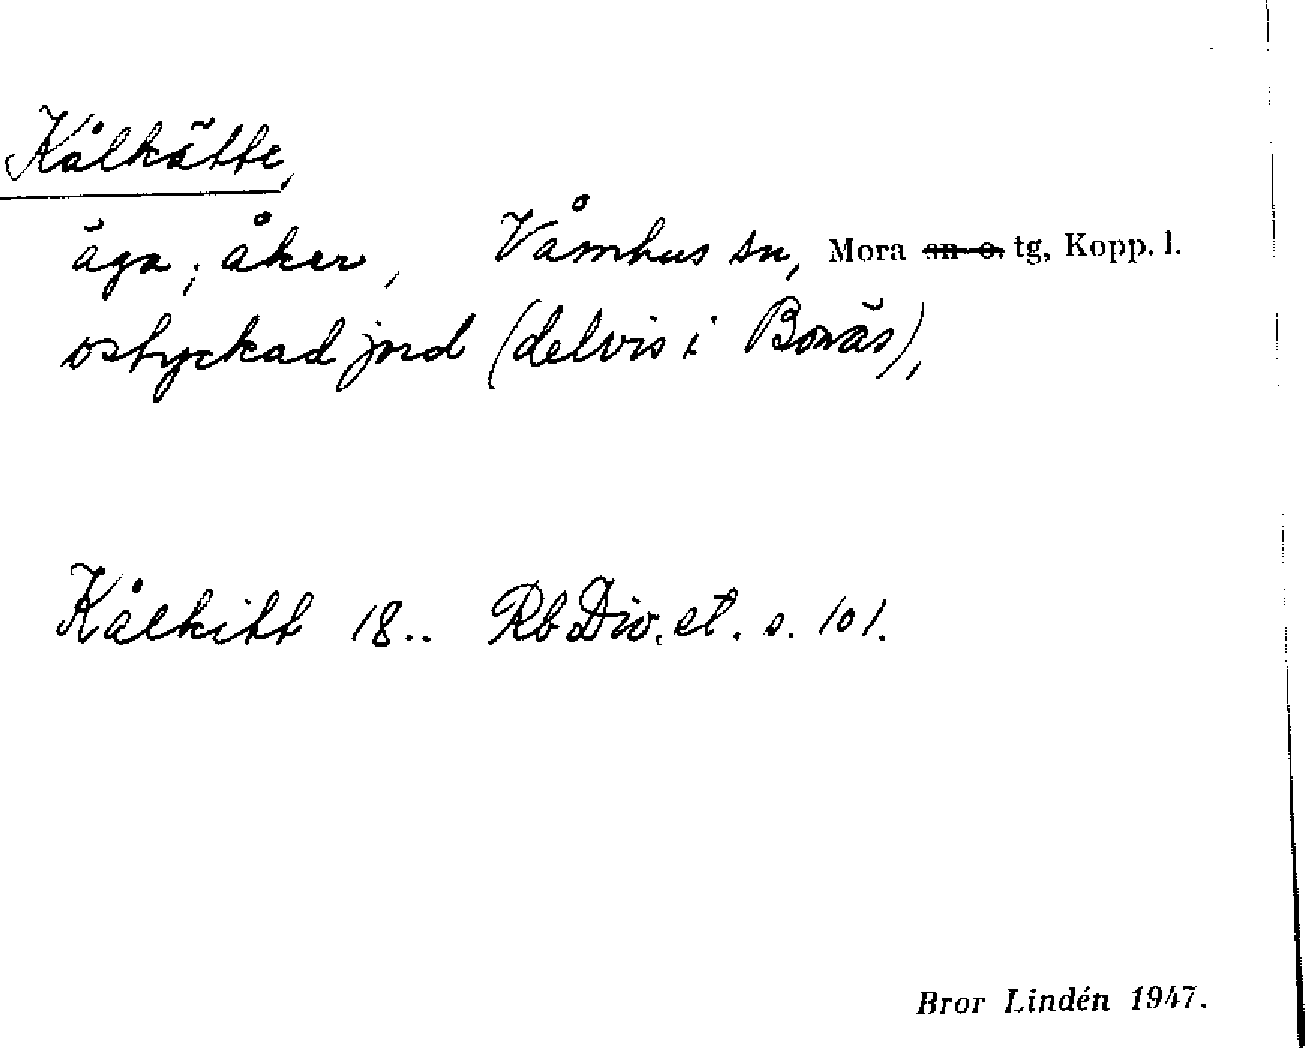 Kålkätte,
äga; åker, Våmhus sn, Mora sn o. tg, Kopp. l.
ostyckad jord (delvis i Bonäs),
Kålkitt 18.. Rb Div. et. s. 101.
Bror Lindén 1947.